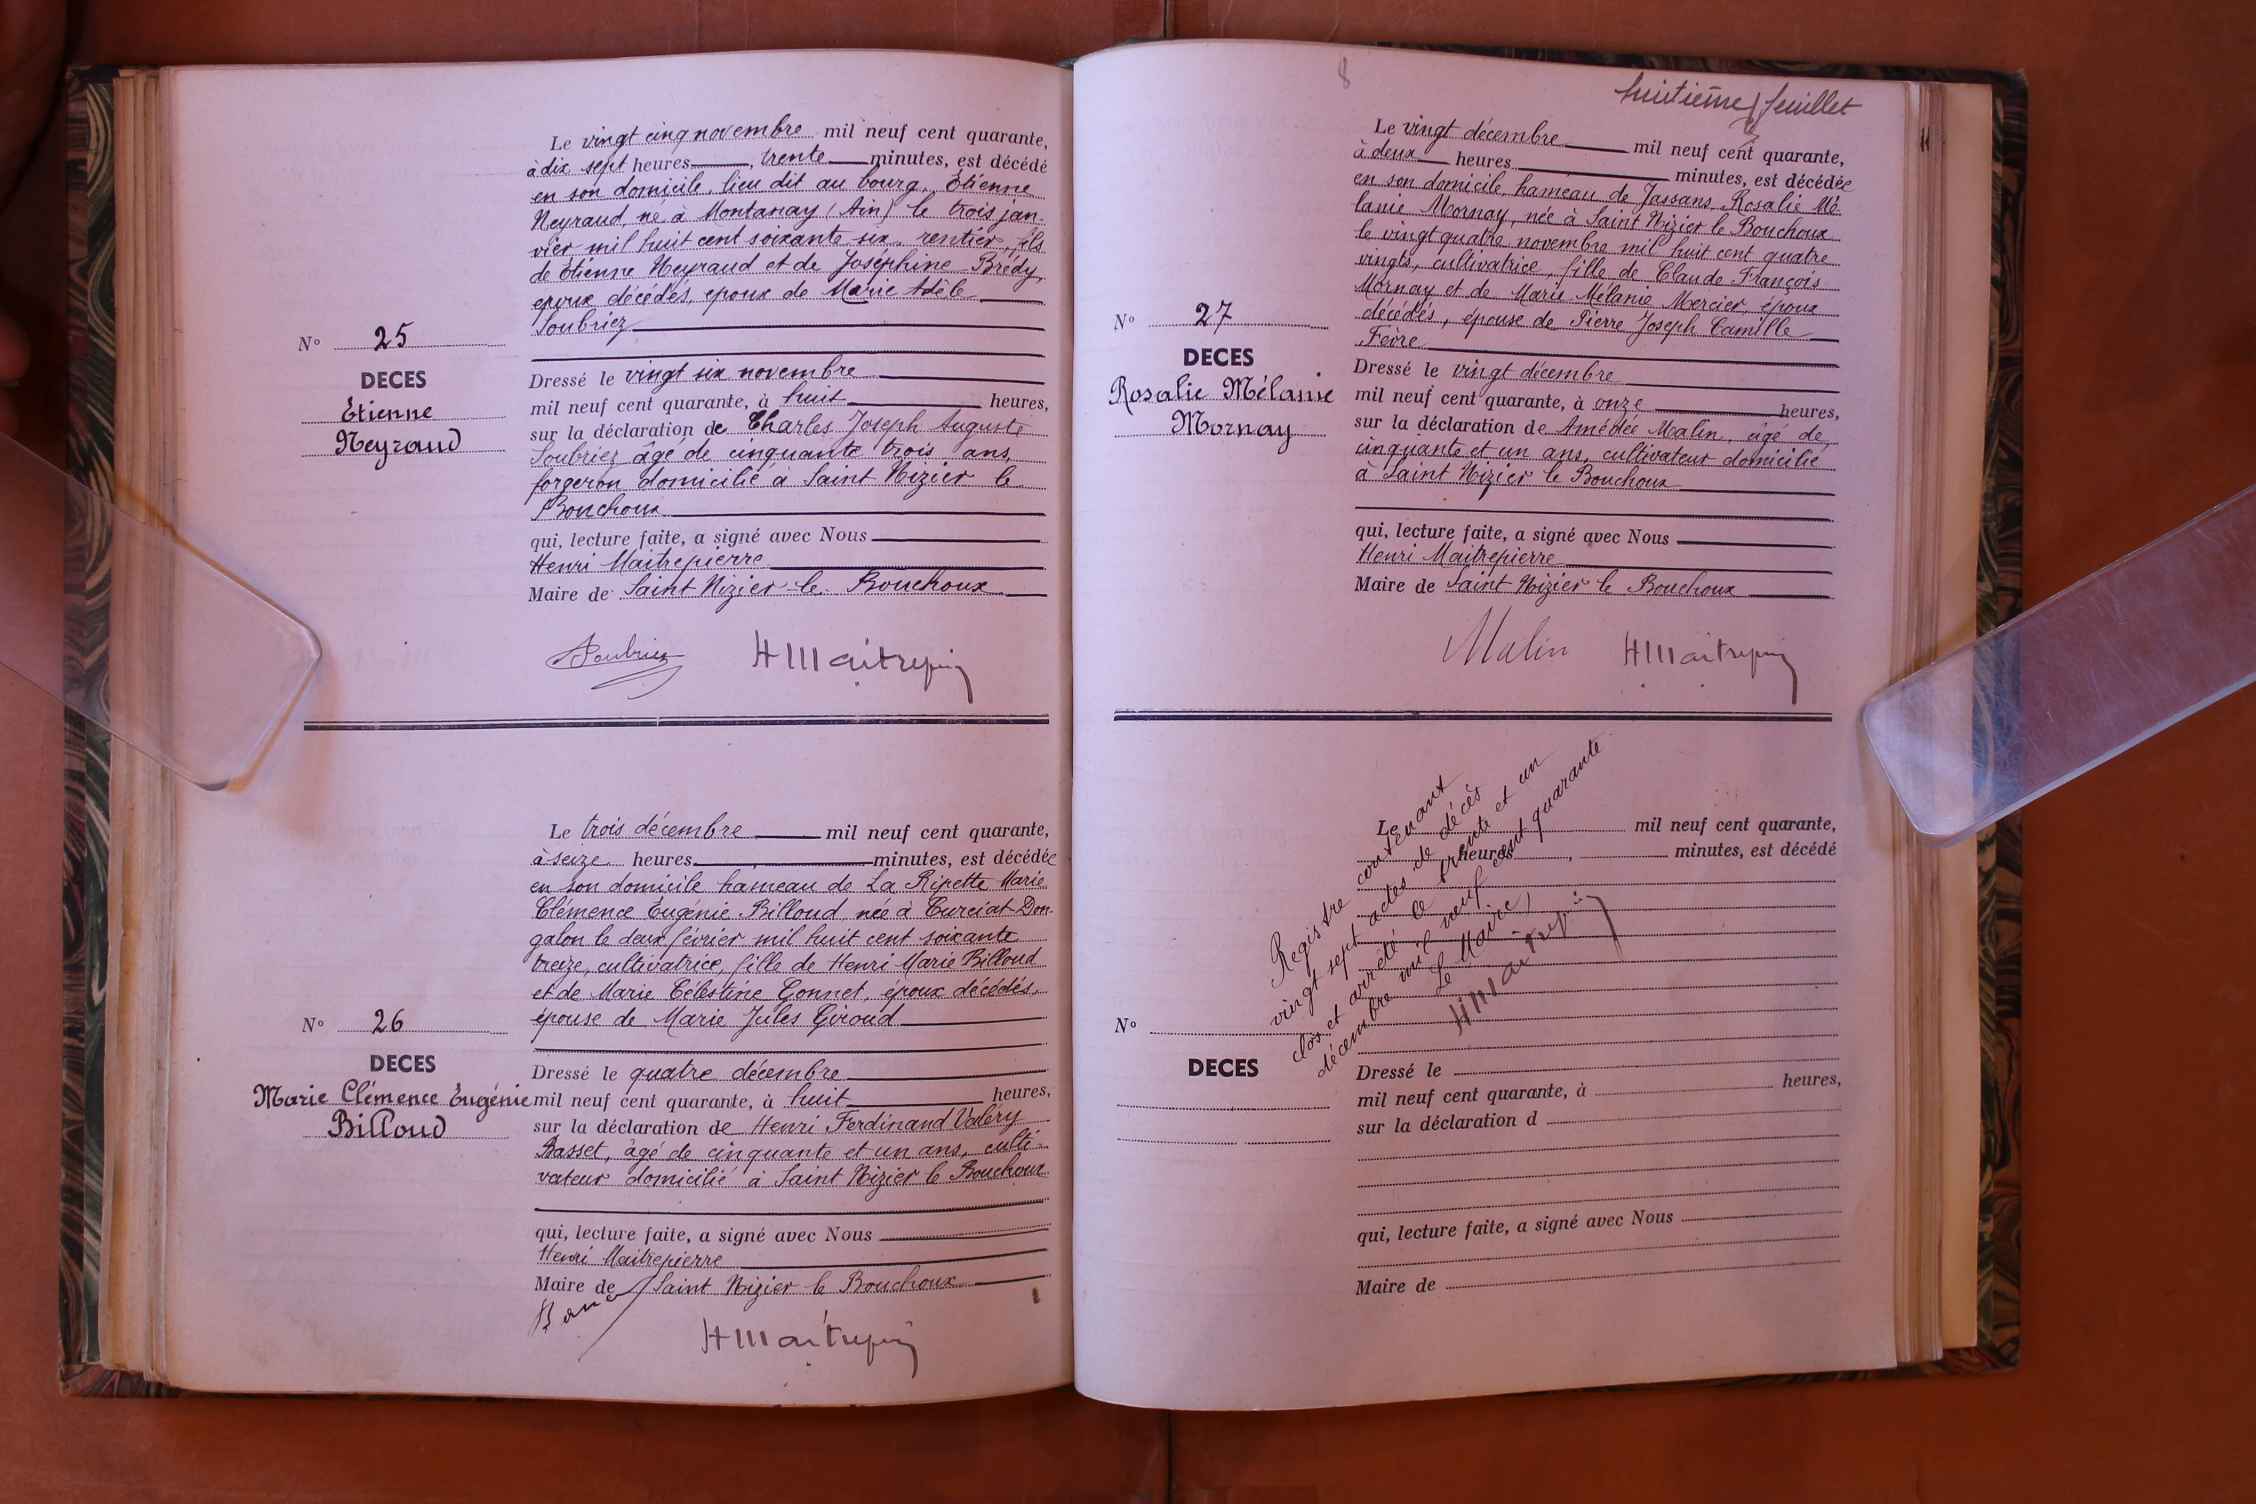 Le vingt cinq novembre mil neuf cent quarante,
à dix sept heures, trente minutes, est décédé
en son domicile, lieu dit au bourg, Étienne
Neyraud, né à Montanay (Ain) le trois jan-
vier mil huit cent soixante six, rentier, fils
de Étienne Neyraud et de Joséphine Brédy,
époux décédés, époux de Marie Adèle
Soubriez
N° 25
DECES
Étienne
Neyraud
Dressé le vingt six novembre
mil neuf cent quarante, à huit heures,
sur la déclaration de Charles Joseph Auguste
Soubriez âgé de cinquante trois ans,
forgeron domicilié à Saint Nizier le
Bouchoux
qui, lecture faite, a signé avec Nous
Henri Maitrepierre
Maire de Saint Nizier le Bouchoux
Soubriez HMaitrepierre
Le trois décembre mil neuf cent quarante,
à seize heures, minutes, est décédée
en son domicile hameau de La Ripette Marie
Clémence Eugénie Billoud née à Curciat-Don-
galon le deux février mil huit cent soixante
treize, cultivatrice, fille de Henri Marie Billoud
et de Marie Célestine Gonnet, époux décédés,
épouse de Marie Jules Giroud
N° 26
DECES
Marie Clémence Eugénie
Billoud
Dressé le quatre décembre
mil neuf cent quarante, à huit heures,
sur la déclaration de Henri Ferdinand Valéry
Basset, âgé de cinquante et un ans, culti-
vateur domicilié à Saint Nizier le Bouchoux
qui, lecture faite, a signé avec Nous
Henri Maitrepierre
Maire de Saint Nizier le Bouchoux
HMaitrepierre
8
huitième feuillet
Le vingt décembre mil neuf cent quarante,
à deux heures minutes, est décédée
en son domicile, hameau de Jassans, Rosalie Mé-
lanie Mornay, née à Saint Nizier le Bouchoux
le vingt quatre novembre mil huit cent quatre
vingts, cultivatrice, fille de Claude François
Mornay et de Marie Mélanie Mercier, époux
décédés, épouse de Pierre Joseph Camille
Fèvre
N° 27
DECES
Rosalie Mélanie
Mornay
Dressé le vingt décembre
mil neuf cent quarante, à onze heures,
sur la déclaration de Amédée Malin, âgé de
cinquante et un ans, cultivateur domicilié
à Saint Nizier le Bouchoux
qui, lecture faite, a signé avec Nous
Henri Maitrepierre
Maire de Saint Nizier le Bouchoux
Malin HMaitrepierre
Le mil neuf cent quarante,
heures, minutes, est décédé
Registre contenant
vingt sept actes de décès
clos et arrêté ce trente et un
décembre mil neuf cent quarante
Le Maire,
HMaitrepierre
N°
DECES
Dressé le
mil neuf cent quarante, à heures,
sur la déclaration d
qui, lecture faite, a signé avec Nous
Maire de